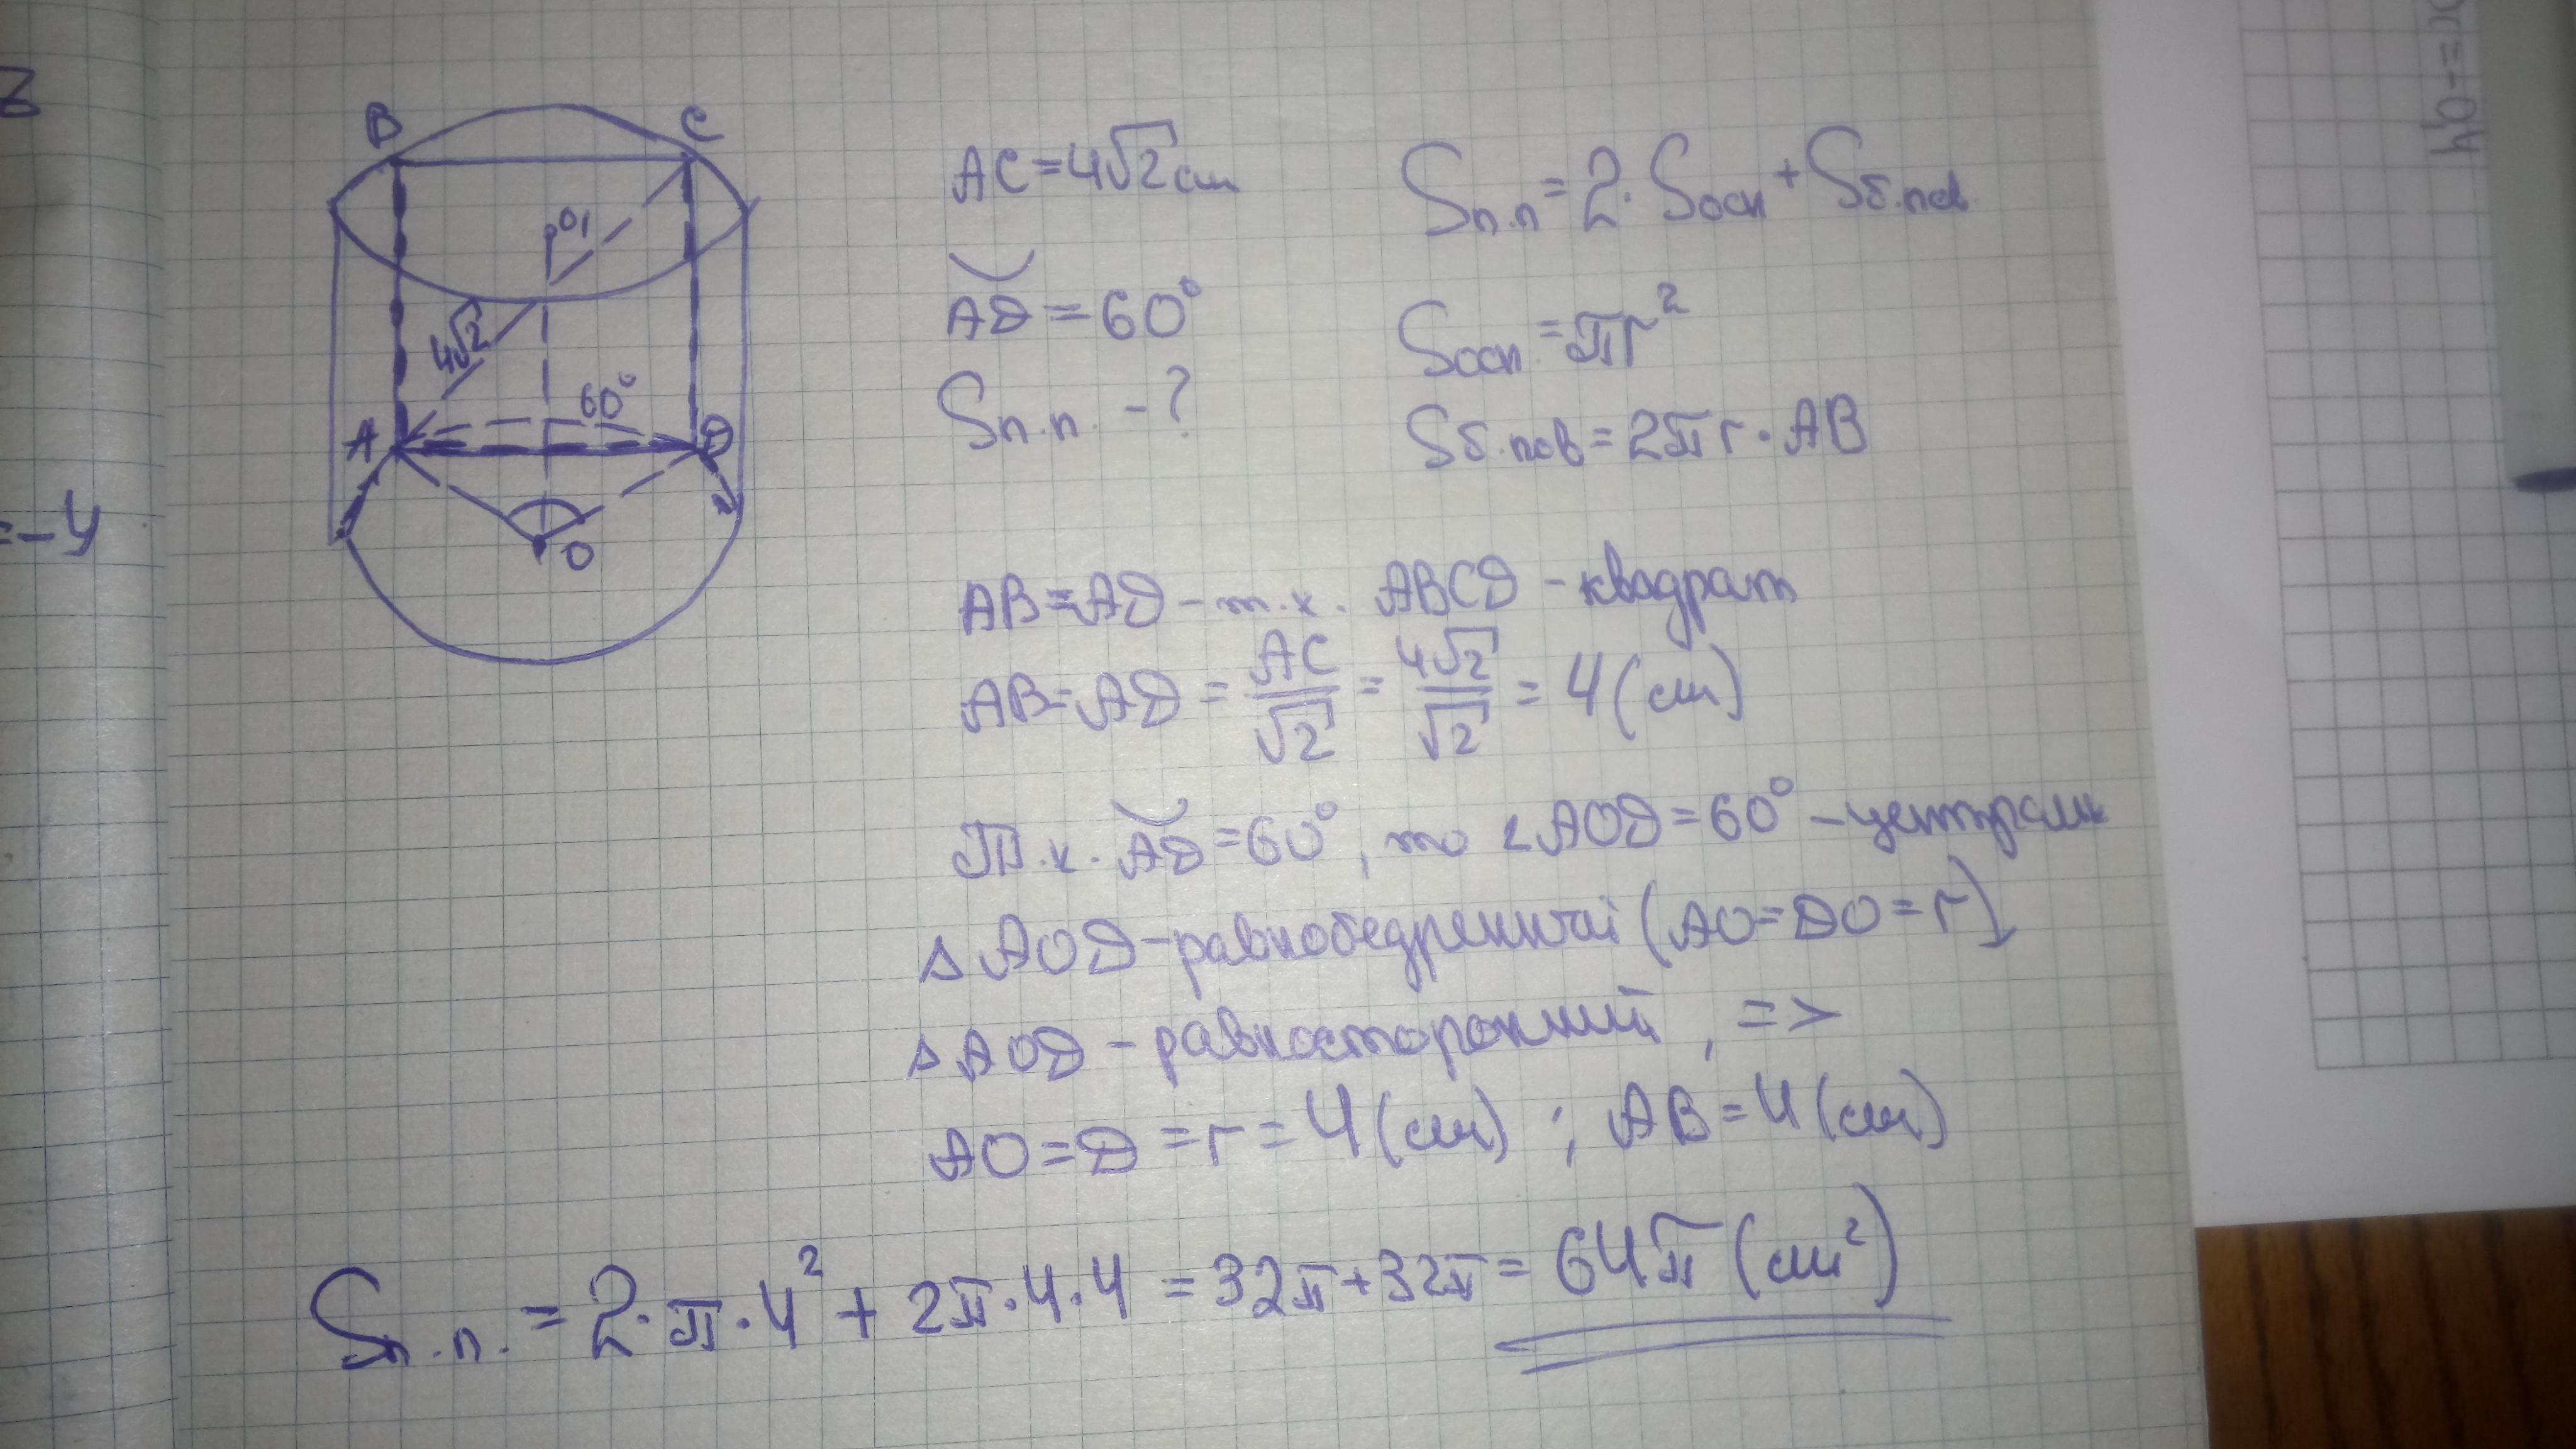 B C
O₁
4√2
60°
A D
O
AC=4√2 см
◡AD=60°
Sп.п. -?
Sп.п=2·Sосн+Sб.пов
Sосн=πr²
Sб.пов=2πr·AB
AB=AD-т.к. ABCD-квадрат
AB=AD=AC/√2=4√2/√2=4(см)
Т.к. ◡AD=60°, то ∠AOD=60°-централн
△AOD-равнобедренный (AO=DO=r)
△AOD-равносторонний, =>
AO=D=r=4(см); AB=4(см)
Sп.п.=2·π·4²+2π·4·4=32π+32π=64π(см²)
=-4
x=-0,4